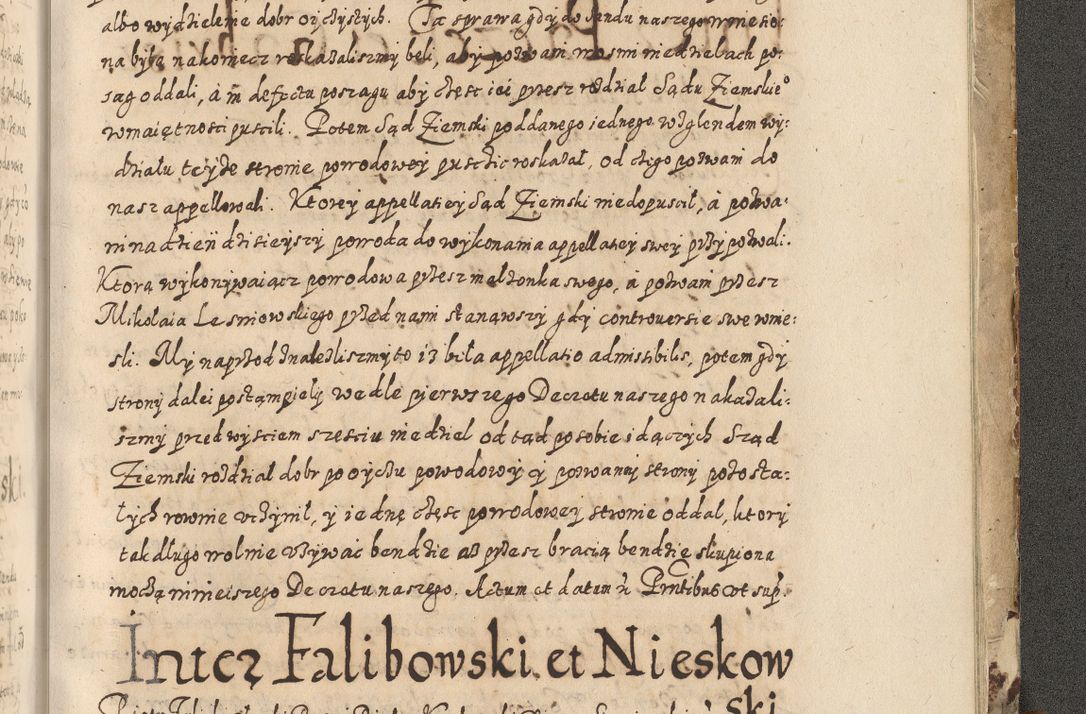 albo wydzielenie dobr oiczystych. Ta sprawa gdy do Sandu naszego wniesio:
na była nakoniecz roskazaliszmy beli, aby pozwani wosmi niedzielach po:
sag oddali, á in defectu poszagu aby częsc iei przesz rozdział Sądu Ziemskie°
wmaiętnosci puscili. Potem Sąd Ziemski poddanego iednego wzglendem wy:
działu teyże stronie powodowey puscic roskazał, od czego pozwani do
nasz appellowali. Ktorey appellatiey Sąd Ziemski niedopuscił, á pozwa:
ni na dzień dzisieyszy powoda do wykonania appellatiey swey przypozwali.
Ktorą wykonywaiącz powodowa przesz małżonka swego, á pozwani przesz
Mikołaia Lesniowskiego przed nami stanąwszy gdy controuersie swe wnie:
sli. My naprzod znalezliszmy to iż biła appellatio admissibilis, potem gdy
strony dalei postąmpieły wedle pierwszego Decretu naszego nakazali:
szmy przed wysciem szesciu niedziel od tąd po sobie idączych Sząd
Ziemski rozdział dobr po oyczu powodowy y pozwanny strony pozosta:
łych rownie vczynił, y iednę częsc powodowey stronie oddał, ktory
tak długo wolnie vżywać bendzie aż przesz bracią bendzie skupiona
moczą ninieiszego Decretu naszego. Actum et datum ut Pntibus vt sup.
Inter Falibowski et Nieskow
ski